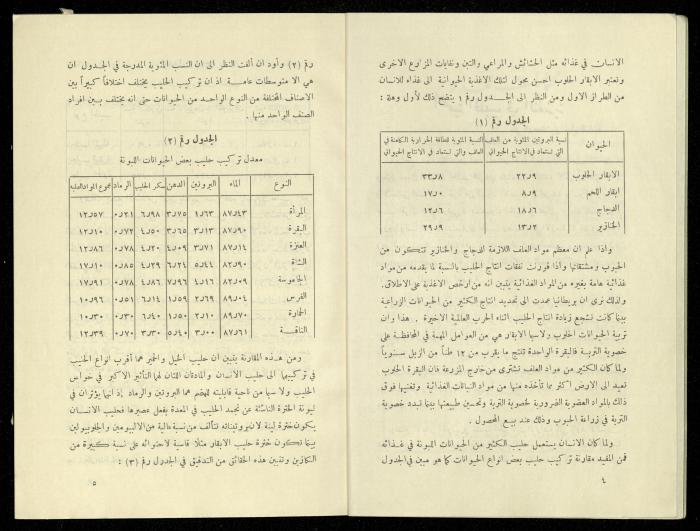 الانسان في غذائه مثل الحشائش والمراعي والتبن ونفايات المزارع الاخرى
وتعتبر الابقار الحلوب احسن محول لتلك الاغذية الحيوانية الى غذاء للانسان
من الطراز الاول ومن النظر الى الجدول رقم ١ يتضح ذلك لأول وهلة :
الجدول رقم (١)
الحيوان | نسبة البروتين المئوية من العلف التي تستعاد في الانتاج الحيواني | النسبة المئوية للطاقة الحرارية الكامنة في العلف والتي تستعاد في الانتاج الحيواني
الابقار الحلوب | ٢٢٫٩ | ٣٣٫٨
ابقار اللحم | ٨٫٩ | ١٧٫٠
الدجاج | ١٨٫٦ | ١٢٫٦
الخنازير | ١٣٫٢ | ٢٩٫٩
واذا علم ان معظم مواد العلف اللازمة للدجاج والخنازير تتكون من
الحبوب ومشتقاتها واذا قورنت نفقات انتاج الحليب بالنسبة لما يقدمه من مواد
غذائية هامة بغيره من المواد الغذائية يتبين انه من ارخص الاغذية على الاطلاق.
ولذلك نرى ان بريطانيا عمدت الى تحديد انتاج الكثير من الحيوانات الزراعية
بينما كانت تشجع زيادة انتاج الحليب اثناء الحرب العالمية الاخيرة . هذا وان
تربية الحيوانات الحلوب ولاسيما الابقار هي من العوامل المهمة في المحافظة على
خصوبة التربة فالبقرة الواحدة تنتج ما يقرب من ١٢ طناً من الزبل سنوياً
ولما كان الكثير من مواد العلف تشترى من خارج المزرعة فان البقرة الحلوب
تعيد الى الارض اكثر مما تأخذه منها من مواد النباتات الغذائية وتغنيها فوق
ذلك بالمواد العضوية الضرورية لخصوبة التربة وتحسين طبيعتها بينما تبدد خصوبة
التربة في زراعة الحبوب وذلك عند بيع المحصول .
ولما كان الانسان يستعمل حليب الكثير من الحيوانات اللبونة في غذائه
فمن المفيد مقارنة تركيب حليب بعض انواع الحيوانات كما هو مبين في الجدول
٤
رقم (٢) وأود ان ألفت النظر الى ان النسب المئوية المدرجة في الجدول ان
هي الا متوسطات عامة اذ ان تركيب الحليب يختلف اختلافاً كبيراً بين
الاصناف المختلفة من النوع الواحد من الحيوانات حتى انه يختلف بين افراد
الصنف الواحد منها .
الجدول رقم (٢)
معدل تركيب حليب بعض الحيوانات اللبونة
النوع | الماء | البروتين | الدهن | سكر الحليب | الرماد | مجموع المواد الصلبة
المرأة | ٨٧٫٤٣ | ١٫٦٣ | ٣٫٧٥ | ٦٫٩٨ | ٠٫٢١ | ١٢٫٥٧
البقرة | ٨٧٫٩٠ | ٣٫١٣ | ٣٫٦٥ | ٤٫٥٠ | ٠٫٧٢ | ١٢٫١٠
العنزة | ٨٧٫١٤ | ٣٫٧١ | ٤٫٠٩ | ٤٫٢٠ | ٠٫٧٨ | ١٢٫٨٦
الشاة | ٨٢٫٩٠ | ٥٫٤٤ | ٦٫٢٤ | ٤٫٢٩ | ٠٫٨٥ | ١٧٫١٠
الجاموسة | ٨٢٫٠٩ | ٤٫١٦ | ٧٫٩٦ | ٤٫٨٦ | ٠٫٧٨ | ١٧٫٩١
الفرس | ٨٩٫٠٤ | ٢٫٦٩ | ١٫٥٩ | ٦٫١٤ | ٠٫٥١ | ١٠٫٩٦
الحمارة | ٨٩٫٧٠ | ٢٫١٠ | ١٫٥٠ | ٦٫٤٠ | ٠٫٣٠ | ١٠٫٣٠
الناقة | ٨٧٫٦١ | ٣٫٠٠ | ٥٫٤٠ | ٣٫٣٠ | ٠٫٧٠ | ١٢٫٣٩
ومن هذه المقارنة يتبين ان حليب الخيل والحمير هما أقرب انواع الحليب
في تركيبهما الى حليب الانسان والمادتان اللتان لهما التأثير الاكبر في خواص
الحليب ولاسيما من ناحية قابليته للهضم هما البروتين والرماد إذ انهما يؤثران في
ليونة الخثرة الناشئة عن تجبن الحليب في المعدة بفعل عصيرها فحليب الانسان
يكون خثرة لينة لان بروتيناته تتألف من نسبة عالية من الالبومين والجلوبيولين
بينما تكون خثرة حليب الابقار مثلا قاسية لاحتوائه على نسبة كبيرة من
الكازين وتتبين هذه الحقائق من التدقيق في الجدول رقم (٣) :
٥